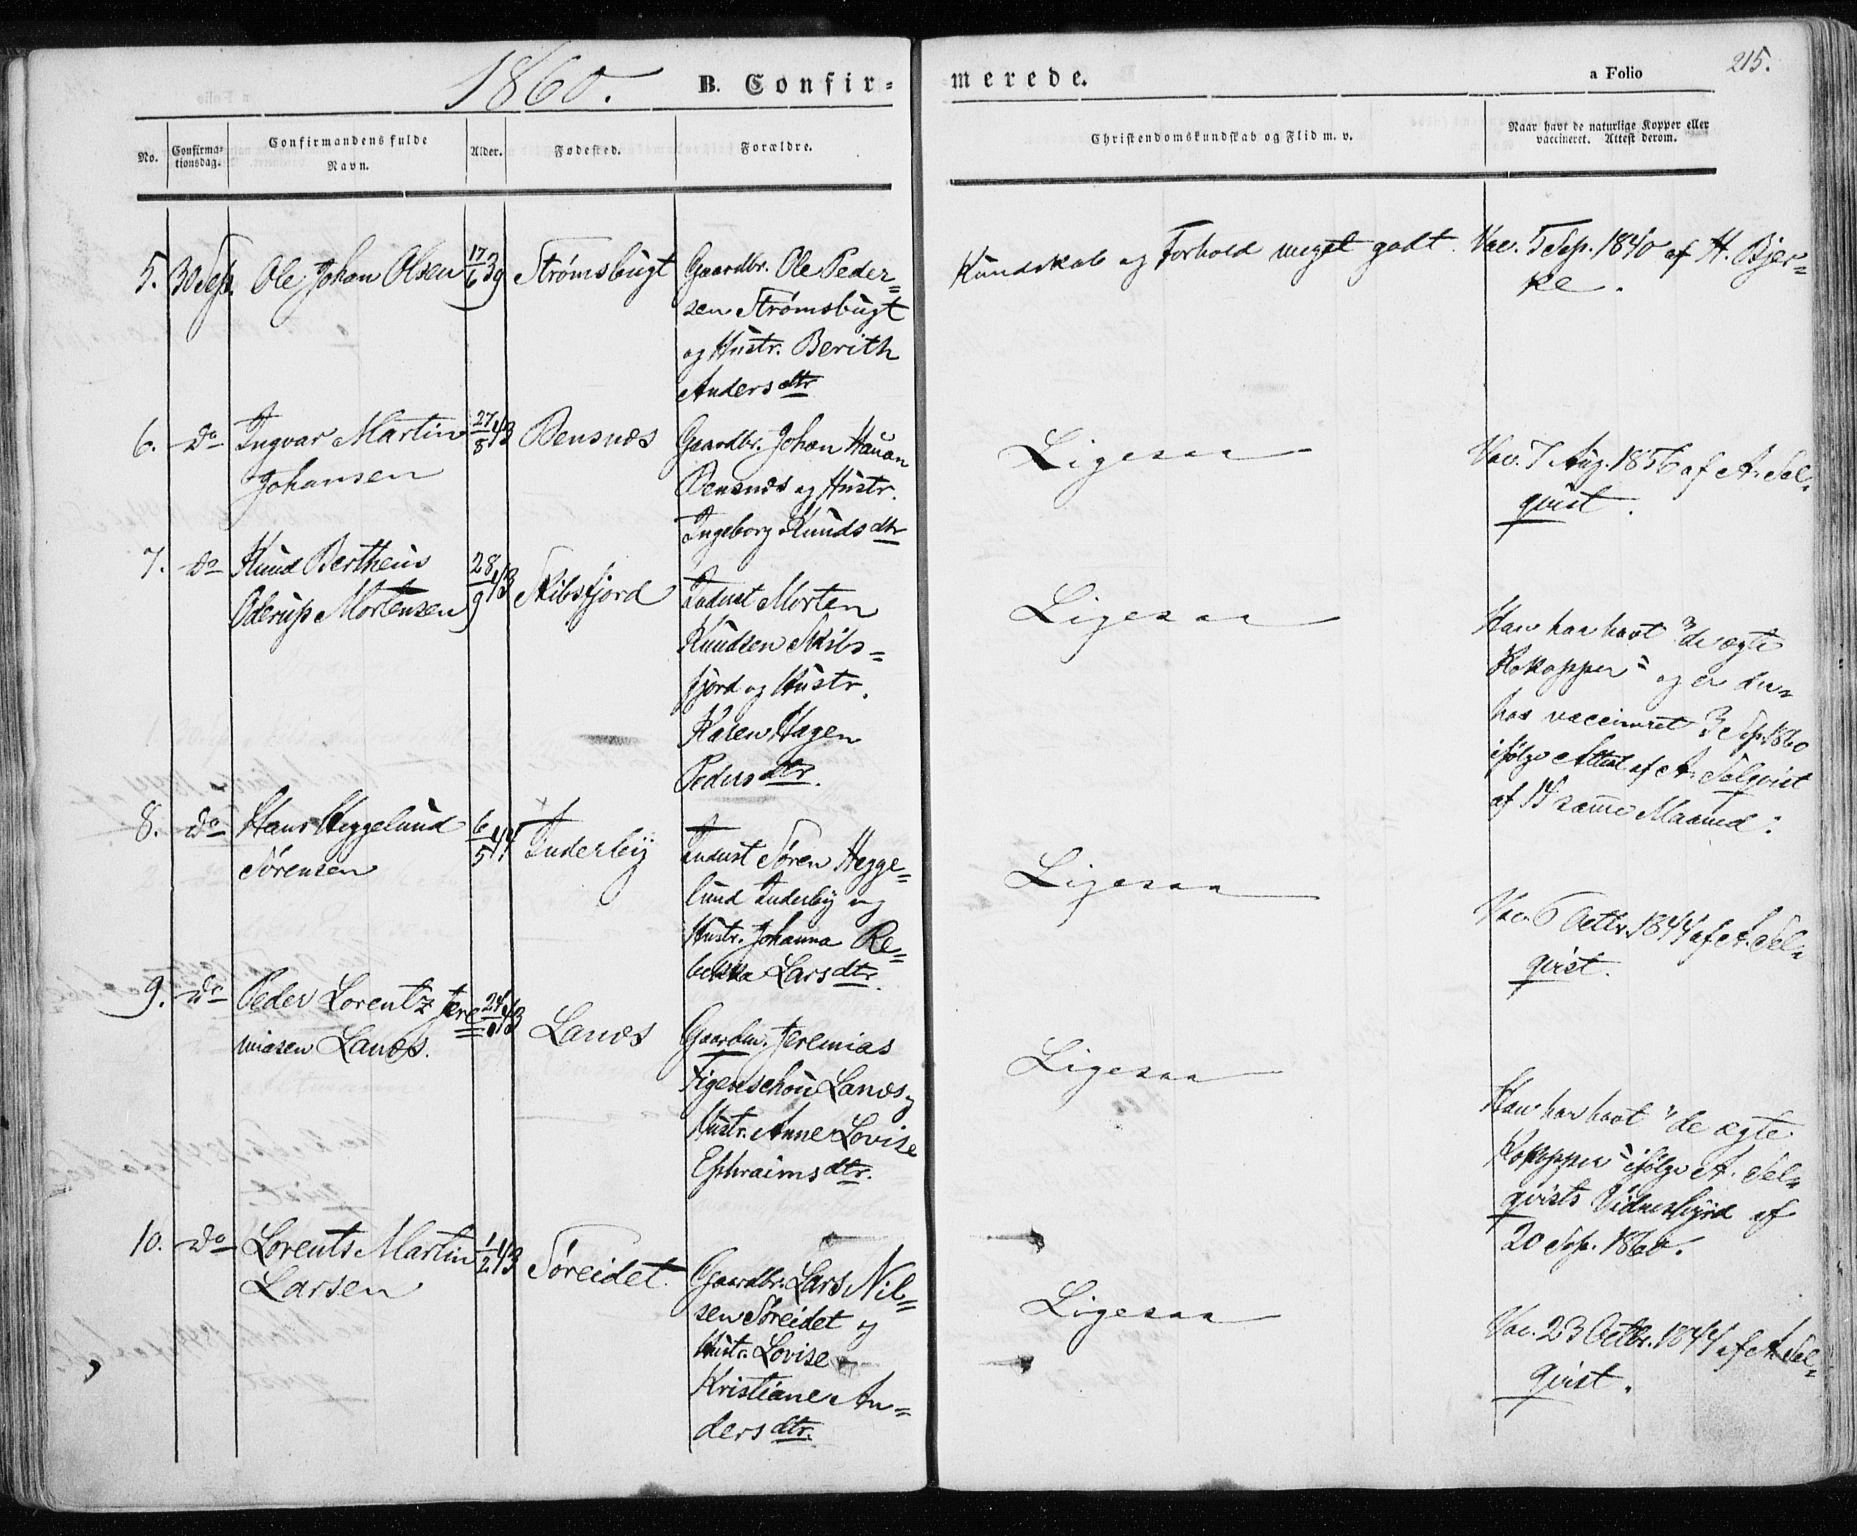 1860. B. Confir- merede. a Folio 215.
No. Confirma- Confirmandens fulde Alder. Fødested. Forældre. Christendomskundskab og Flid m. v. Naar havt de naturlige Kopper eller
tionsdag. Navn. vaccineret. Attest derom.
5. 30 Sep. Ole Johan Olsen 17/6 39 Strømsbugt Gaardbr. Ole Peder-
sen Strømsbugt
og Hustr. Berith
Andersdtr
Kundskab og Forhold meget godt. Vac. 5 Sep. 1840 af H. Bjer-
ke.
6. do Ingvar Martin 27/8 43 Bensnæs Gaardbr. Johan Hauan
Johansen Bensnæs og Hustr.
Ingeborg Knudsdtr
Ligesaa Vac. 7 Aug. 1856 af A. Sel-
qvist.
7. do Knud Bertheus 28/9 43 Skibsfjord Indust Morten
Oderup Mortensen Knudsen Skibs-
fjord og Hustr.
Karen Hagen
Pedersdtr.
Ligesaa Han har havt "de ægte
Kokopper" og er der-
hos vaccineret 3 Sep. 1860
ifølge Attest af A. Selqvist
af 14 samme Maaned.
8. do Hans Heggelund 6/5 44 Inderby Indust Søren Hegge-
Sørensen lund Inderby og
Hustr. Johanna Re-
bekka Larsdtr.
Ligesaa Vac. 6 Octbr. 1844 af A. Sel-
qvist.
9. do Peder Lorentz Jere- 43 Lanæs Gaardm. Jeremias
miasen Lanæs. Figenschou Lanæs og
Hustr. Anne Lovise
Ephraimsdtr.
Ligesaa Han har havt "de ægte
Kokopper" ifølge A. Sel-
qvists Vidnesbyrd af
20 Sep. 1860.
10. do Lorents Martin 1/2 43 Søreidet. Gaardbr. Lars Nil-
Larsen sen Søreidet og
Hustr. Lovise
Kristiane An-
dersdtr.
Ligesaa Vac. 23 Octbr. 1844 af A. Sel-
qvist.